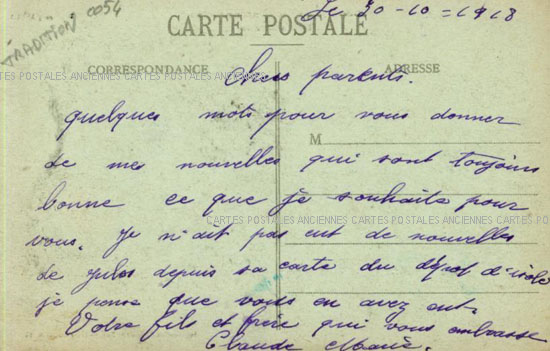 TRADITION 0054
Le 30-10=1918
CARTE POSTALE
CORRESPONDANCE
ADRESSE
CARTES POSTALES ANCIENNES CARTES POSTALES ANCIENNES CARTES POSTALES ANCIENNES CARTES POS
Chers parents.
quelques mots pour vous donner
M
de mes nouvelles qui sont toujours
bonne ce que je souhaite pour
CARTES POSTALES ANCIENNES CARTES POSTALES ANCIENNES CARTES POS
vous. Je n'ait pas eut de nouvelles
de Jules depuis sa carte du dépot d'isolé
je pense que vous en avez eut.
Votre fils et frère qui vous embrasse
Claude Marie.